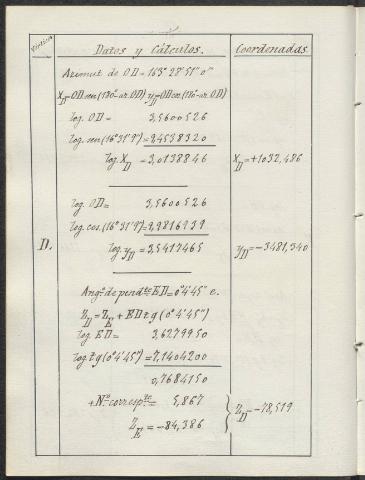 Vértice
Datos y Cálculos.
Coordenadas
Azimut de OD = 163° 28' 51" 0"
X_D = OD sen(180°-az. OD) y_D = OD cos(180°-az. OD)
log. OD = 3,5600526
log. sen(16°31'9") = 9,4538320
log X_D = 3,0138846
X_D = +1032,486
log. OD = 3,5600526
log. cos(16°31'9") = 9,9816939
D.
log. y_D = 3,5417465
y_D = -3481,340
Ang.º de pend.te ED = 0°4'45" e.
Z_D = Z_E + ED tg (0°4'45")
log. ED = 3,6279950
log. tg(0°4'45") = 7,1404200
0,7684150
+ N.º corresp.te = 5,867
Z_D = -78,519
Z_E = -84,386